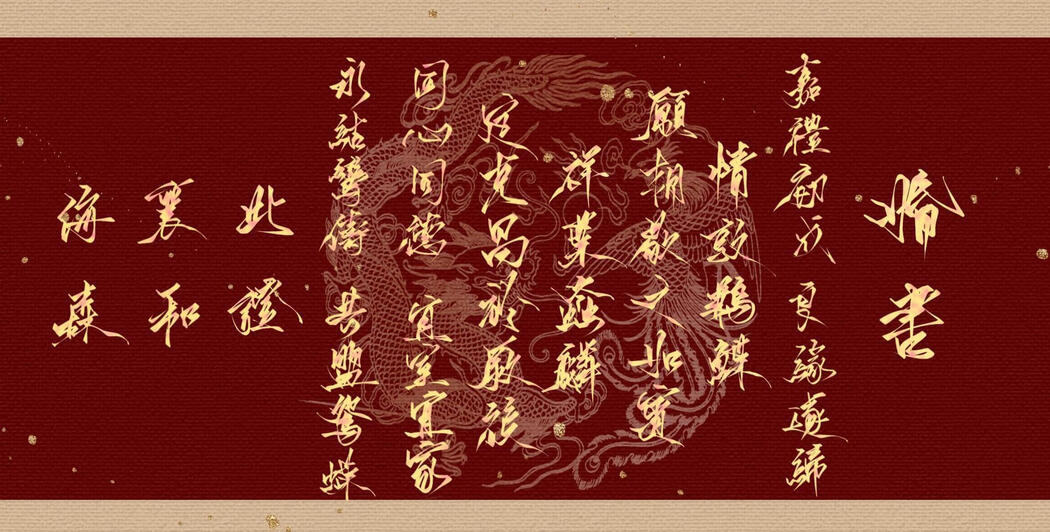 婚書
嘉禮初成 良緣遂締
情敦鶼鰈
願相敬之如賓
祥葉螽麟
定克昌於厥後
同心同德 宜室宜家
永結鸞儔 共盟鴛蝶
此證
襄和
海森